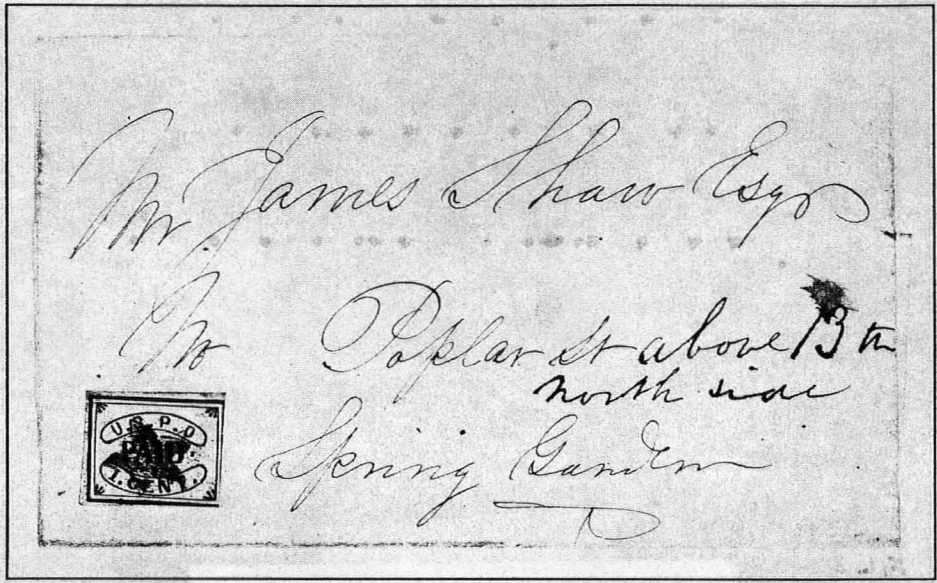 Mr James Shaw Esqr
No Poplar st above 13th
north side
Spring Garden
U.S.P.O
PAID.
1. CENT.